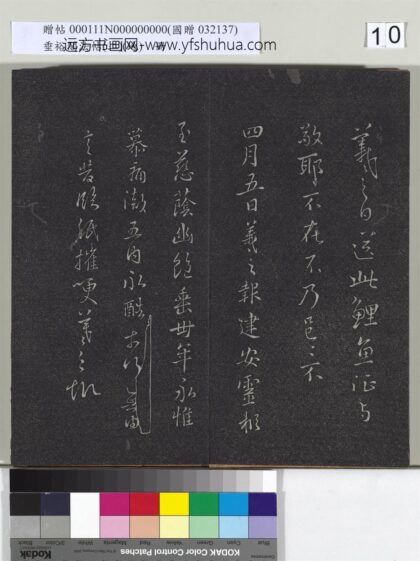 贈帖 000111N000000000(國贈 032137)
远方书画网-www.yfshuhua.com
10
羲之白送此鯉魚征与
敬耶不在不乃邑邑不
四月五日羲之報建安靈柩
至慈蔭幽絕垂卅年永惟
崇慕痛徹五內永酷奈何無由
言苦臨紙摧哽羲之頓
KODAK Color Control Patches
Blue
Cyan
Green
Yellow
Red
Magenta
White
3/Color
Black